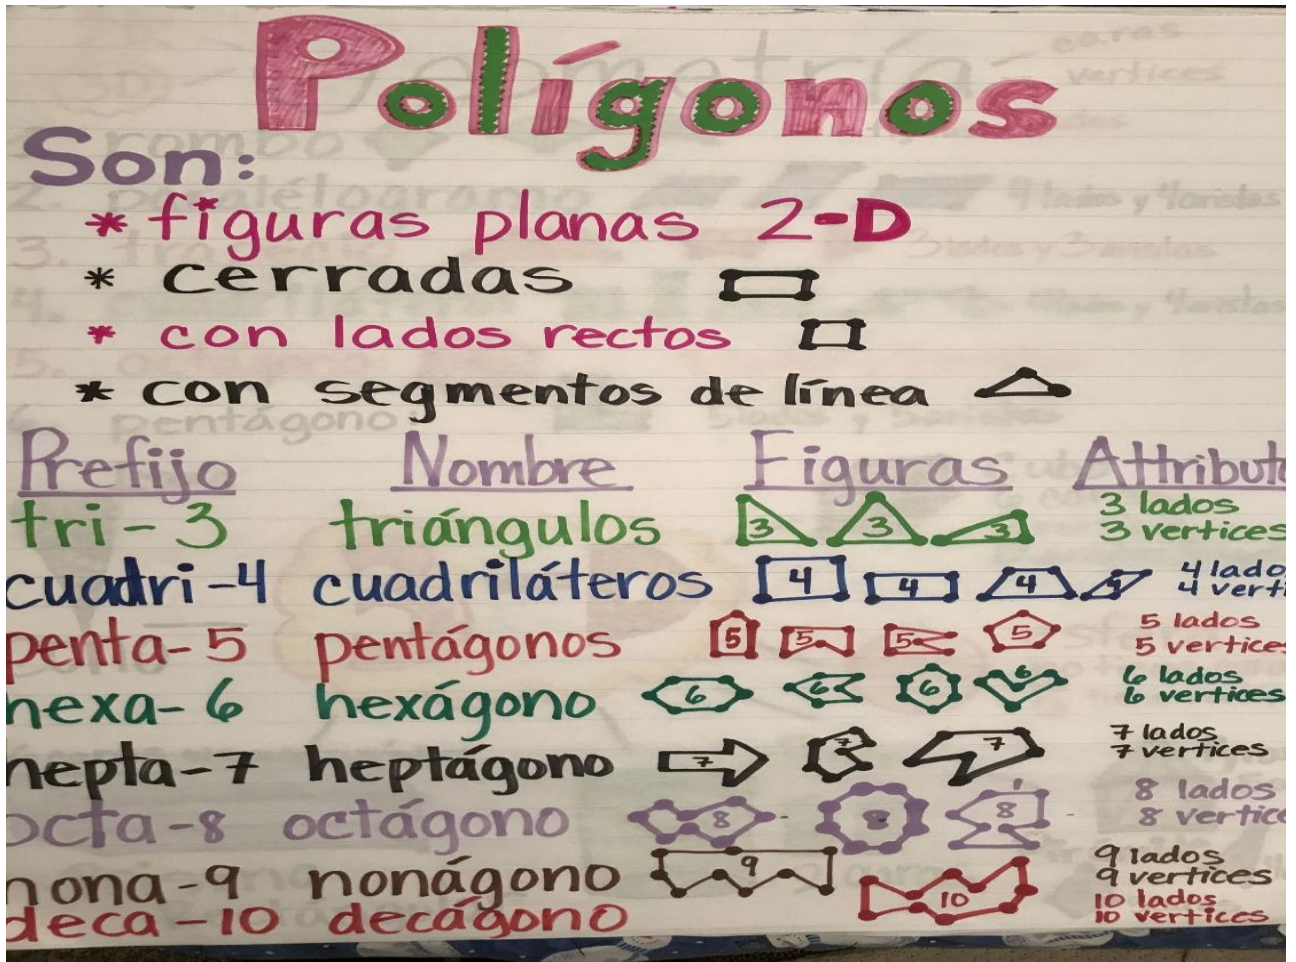 Polígonos
Son:
* figuras planas 2-D
* cerradas
* con lados rectos
* con segmentos de línea
Prefijo Nombre Figuras Attribut
tri-3 triángulos 3 3 3 3 lados
3 vertices
cuadri-4 cuadriláteros 4 4 4 4 4 lado
4 verti
penta-5 pentágonos 5 5 5 5 5 lados
5 vertices
hexa-6 hexágono 6 6 6 6 6 lados
6 vertices
hepta-7 heptágono 7 7 7 7 lados
7 vertices
octa-8 octágono 8 8 8 8 lados
8 vertice
nona-9 nonágono 9 9 lados
9 vertices
deca-10 decágono 10 10 lados
10 vertices